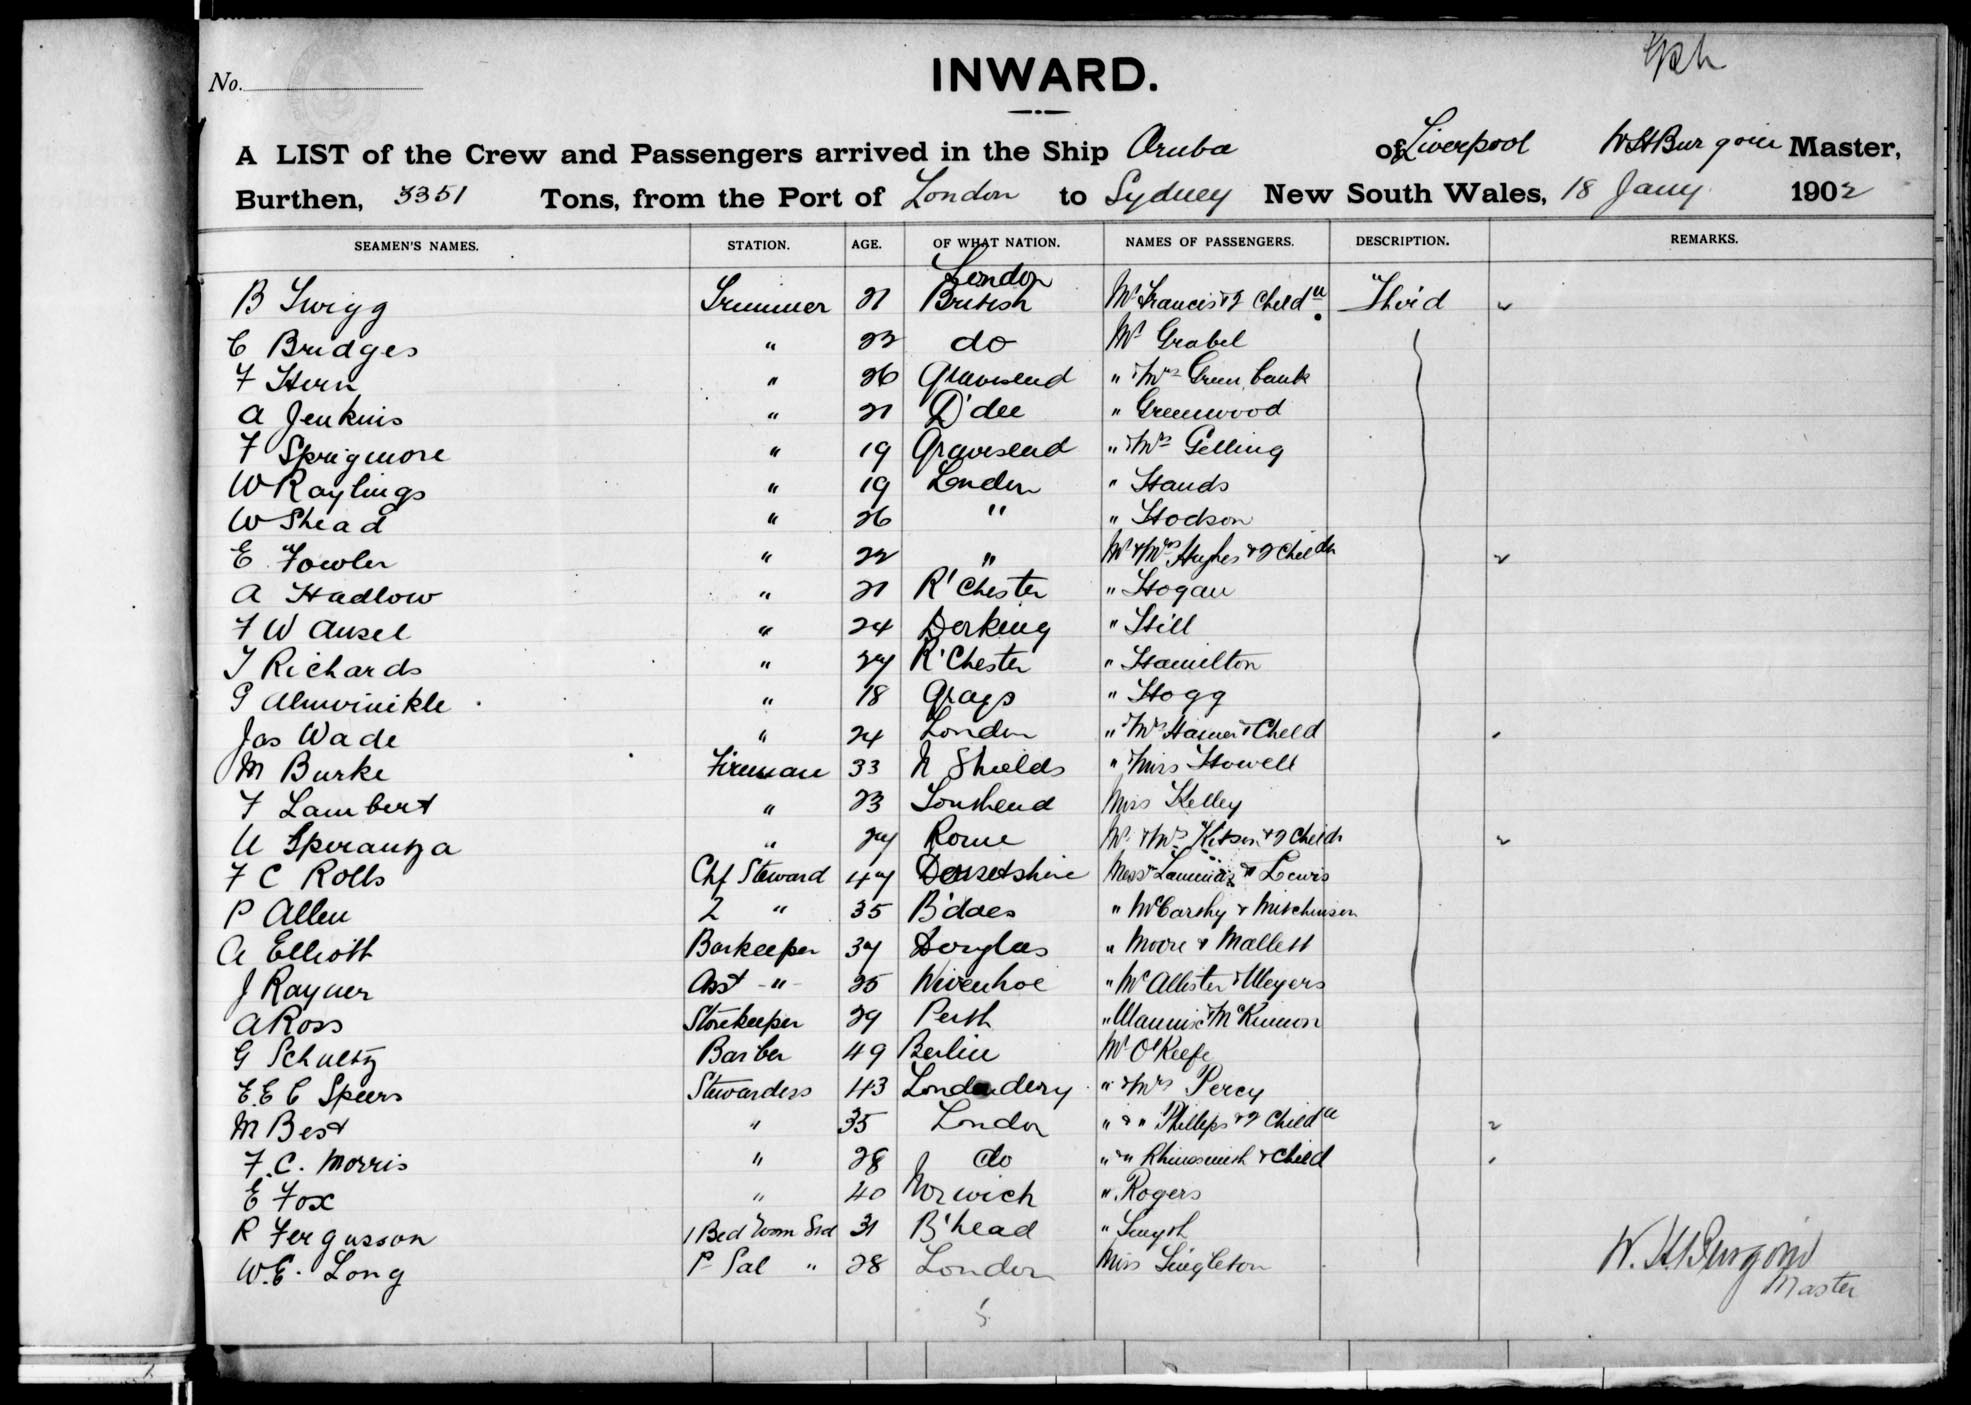 No.
INWARD.
A LIST of the Crew and Passengers arrived in the Ship Oruba of Liverpool W H Burgoin Master,
Burthen, 3351 Tons, from the Port of London to Sydney New South Wales, 18 Jany 1902
SEAMEN'S NAMES. STATION. AGE. OF WHAT NATION. NAMES OF PASSENGERS. DESCRIPTION. REMARKS.
London
B Twigg Trimmer 21 British Mrs Francis & 2 Childn Third 2
C Bridges " 22 do Mr Grabel
F Hern " 26 Gravesend " & Mrs Greenbank
A Jenkins " 21 D'dee " Greenwood
F Sprigmore " 19 Gravesend " & Mrs Gelling
W Raylings " 19 London " Hands
W Shead " 26 " " Hodson
E Fowler " 22 " Mr & Mrs Hughes & 2 Childn 2
A Hadlow " 21 R'Chester " Hogan
F W Ansel " 24 Dorking " Hill
T Richards " 27 R'Chester " Hamilton
G " 18 Grays " Hogg
Jas Wade " 24 London " & Mrs Hamer & Child
M Burke Fireman 33 N Shields " & Mrs Howell
F Lambert " 23 Southend Miss Kelley
U Speranza " 27 Rome Mr & Mrs Kitson & 2 Childn 2
F C Rolls Chf Steward 47 Dorsetshire Messrs & Lewis
P Allen 2 " 35 B'does " McCarthy & Mitchinson
A Elliott Barkeeper 37 Douglas " Moore & Mallett
J Rayner Asst -"- 25 Wivenhoe " McAllister & Meyers
A Ross Storekeeper 29 Perth " & McKinnon
G Schultz Barber 49 Berlin Mr O'Keefe
E.E C Speers Stewardess 43 Londondery " & Mrs Percy
M Best " 35 London " & " Phillips & 2 Childn 2
F.C. Morris " 28 do " & " Rhinesmith & Child
E Fox " 40 Norwich " Rogers
R Fergusson 1 Bed Room Std 31 B'head " Smyth
W.E. Long P Sal " 28 London Miss Singleton
W. H. Burgoin
Master